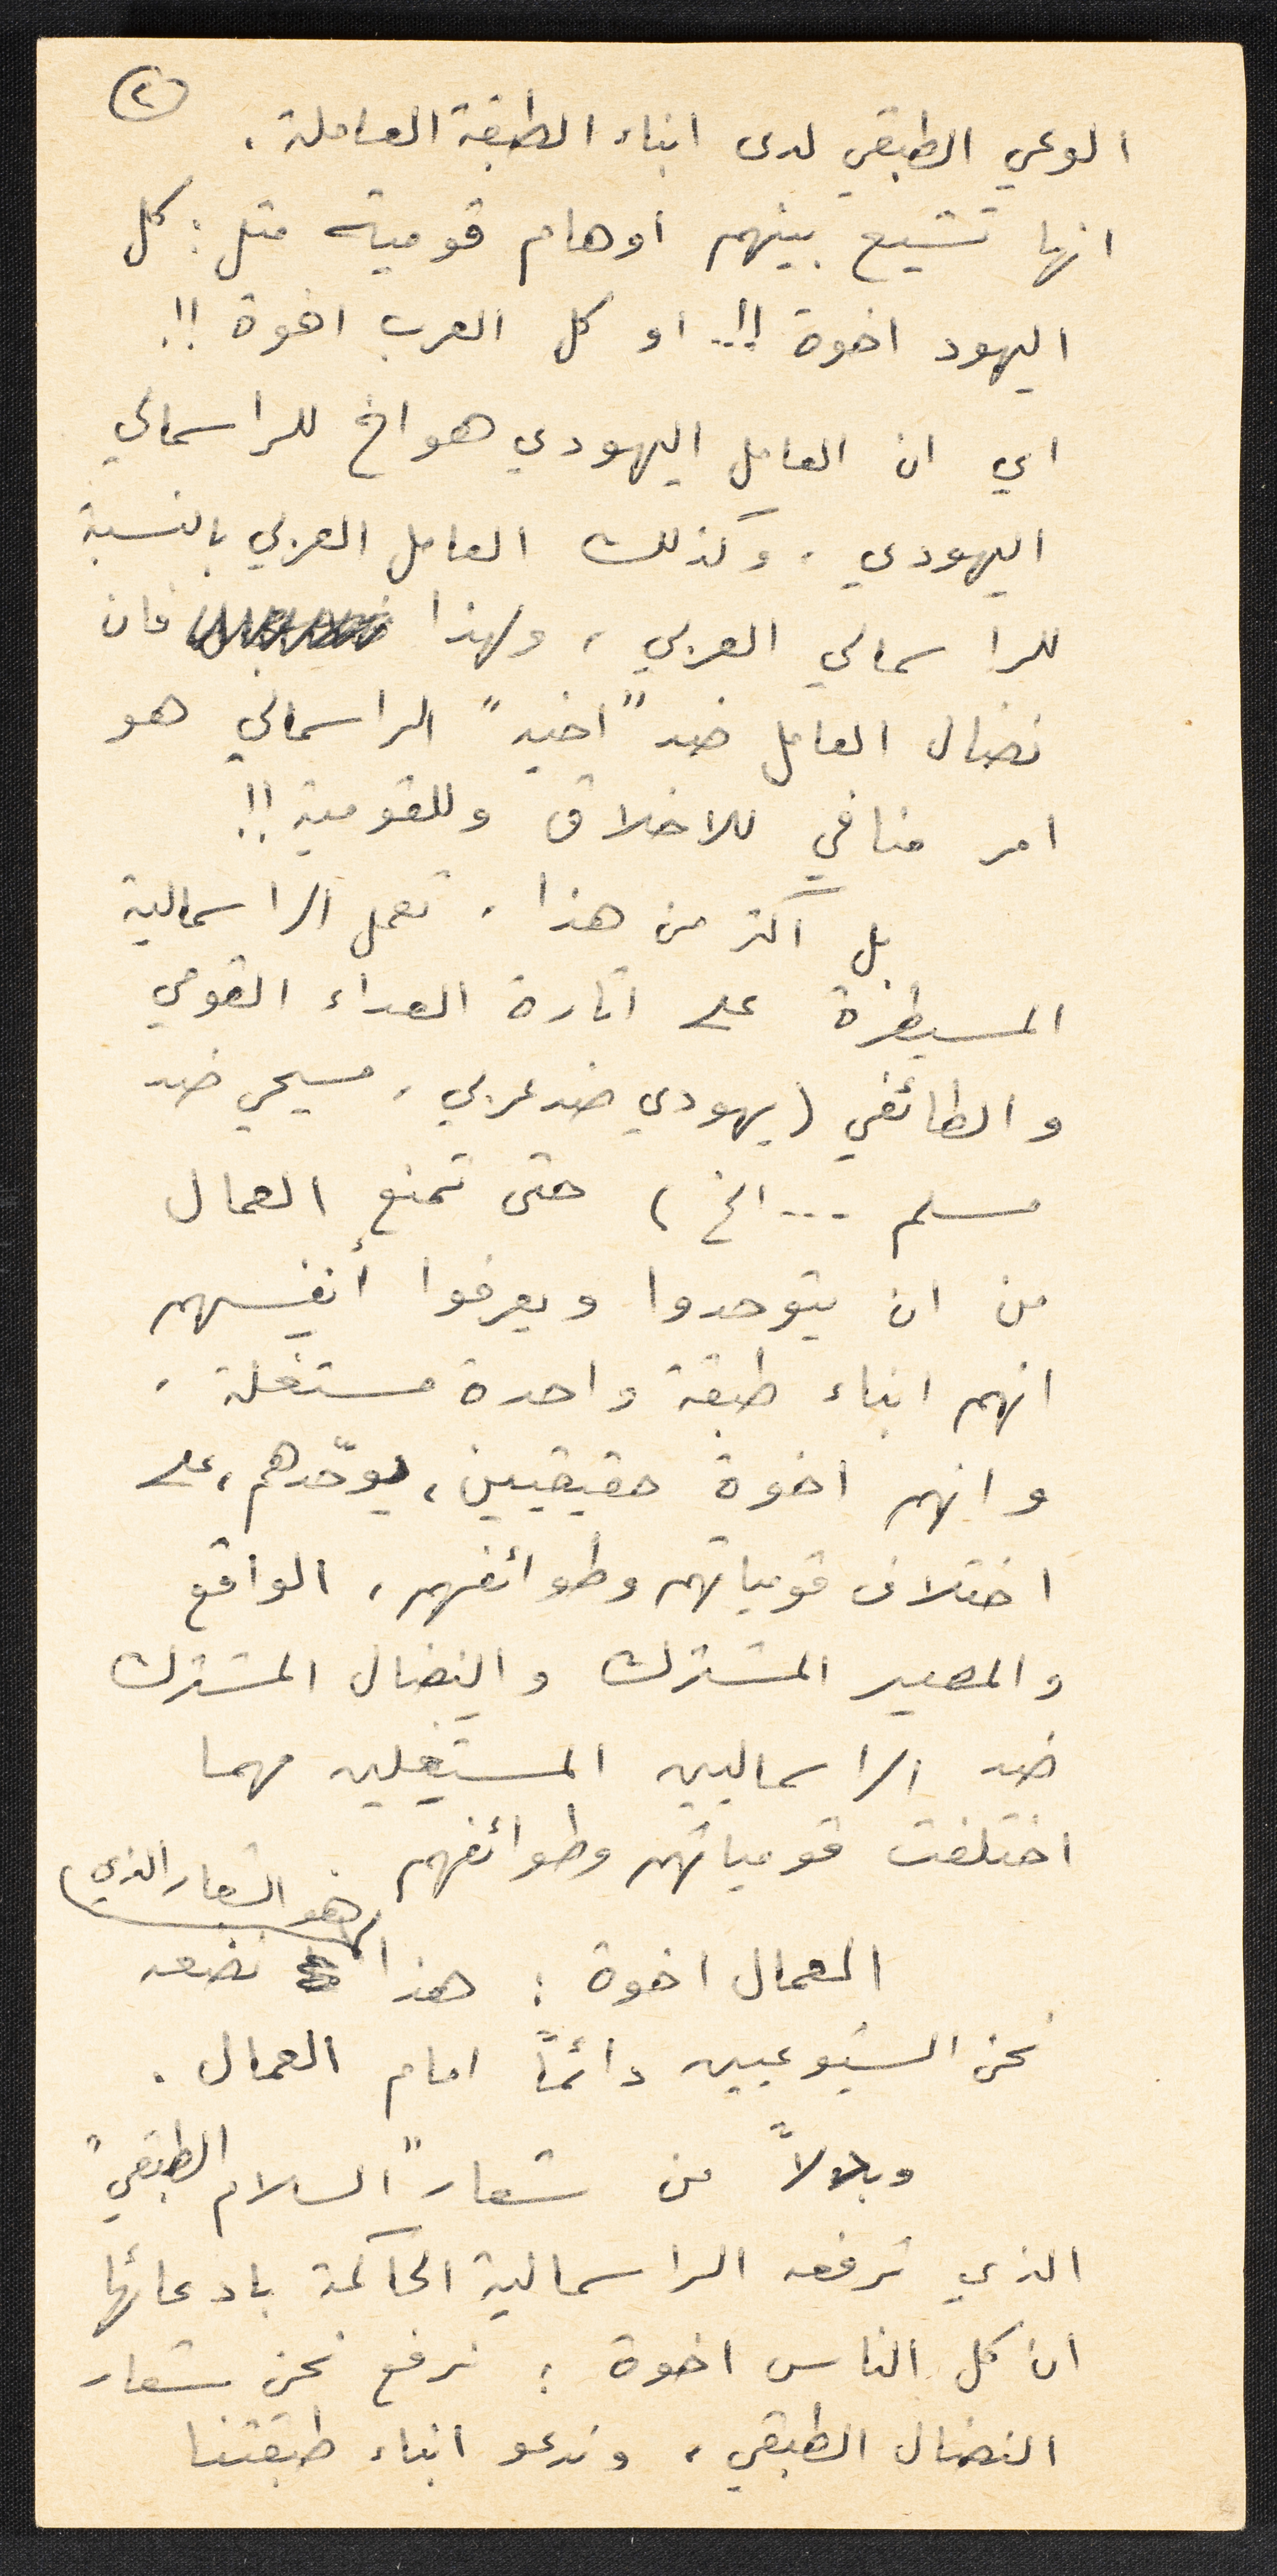 ٢
الوعي الطبقي لدى ابناء الطبقة العاملة .
انها تشيع بينهم اوهام قومية مثل : كل
اليهود اخوة !!.. او كل العرب اخوة !!
اي ان العامل اليهودي هو اخ للراسمالي
اليهودي ، وكذلك العامل العربي بالنسبة
للراسمالي العربي ، ولهذا فان
نضال العامل ضد "اخيه" الراسمالي هو
امر منافي للاخلاق وللقومية !!
بل اكثر من هذا ، تعمل الراسمالية
المسيطرة على اثارة العداء القومي
والطائفي ( يهودي ضد عربي ، مسيحي ضد
مسلم ... الخ ) حتى تمنع العمال
من ان يتوحدوا ويعرفوا أنفسهم
انهم ابناء طبقة واحدة مستغلة ،
وانهم اخوة حقيقيين ، يوحّدهم ، على
اختلاف قومياتهم وطوائفهم ، الواقع
والمصير المشترك والنضال المشترك
ضد الراسماليين المستغِلين مهما
اختلفت قومياتهم وطوائفهم
هو الشعار الذي
العمال اخوة : هذا نضعه
نحن الشيوعيين دائماً امام العمال .
وبدلاً من شعار "السلام الطبقي"
الذي ترفعه الراسمالية الحاكمة بادعائها
ان كل الناس اخوة ؛ نرفع نحن شعار
النضال الطبقي ، وندعو ابناء طبقتنا